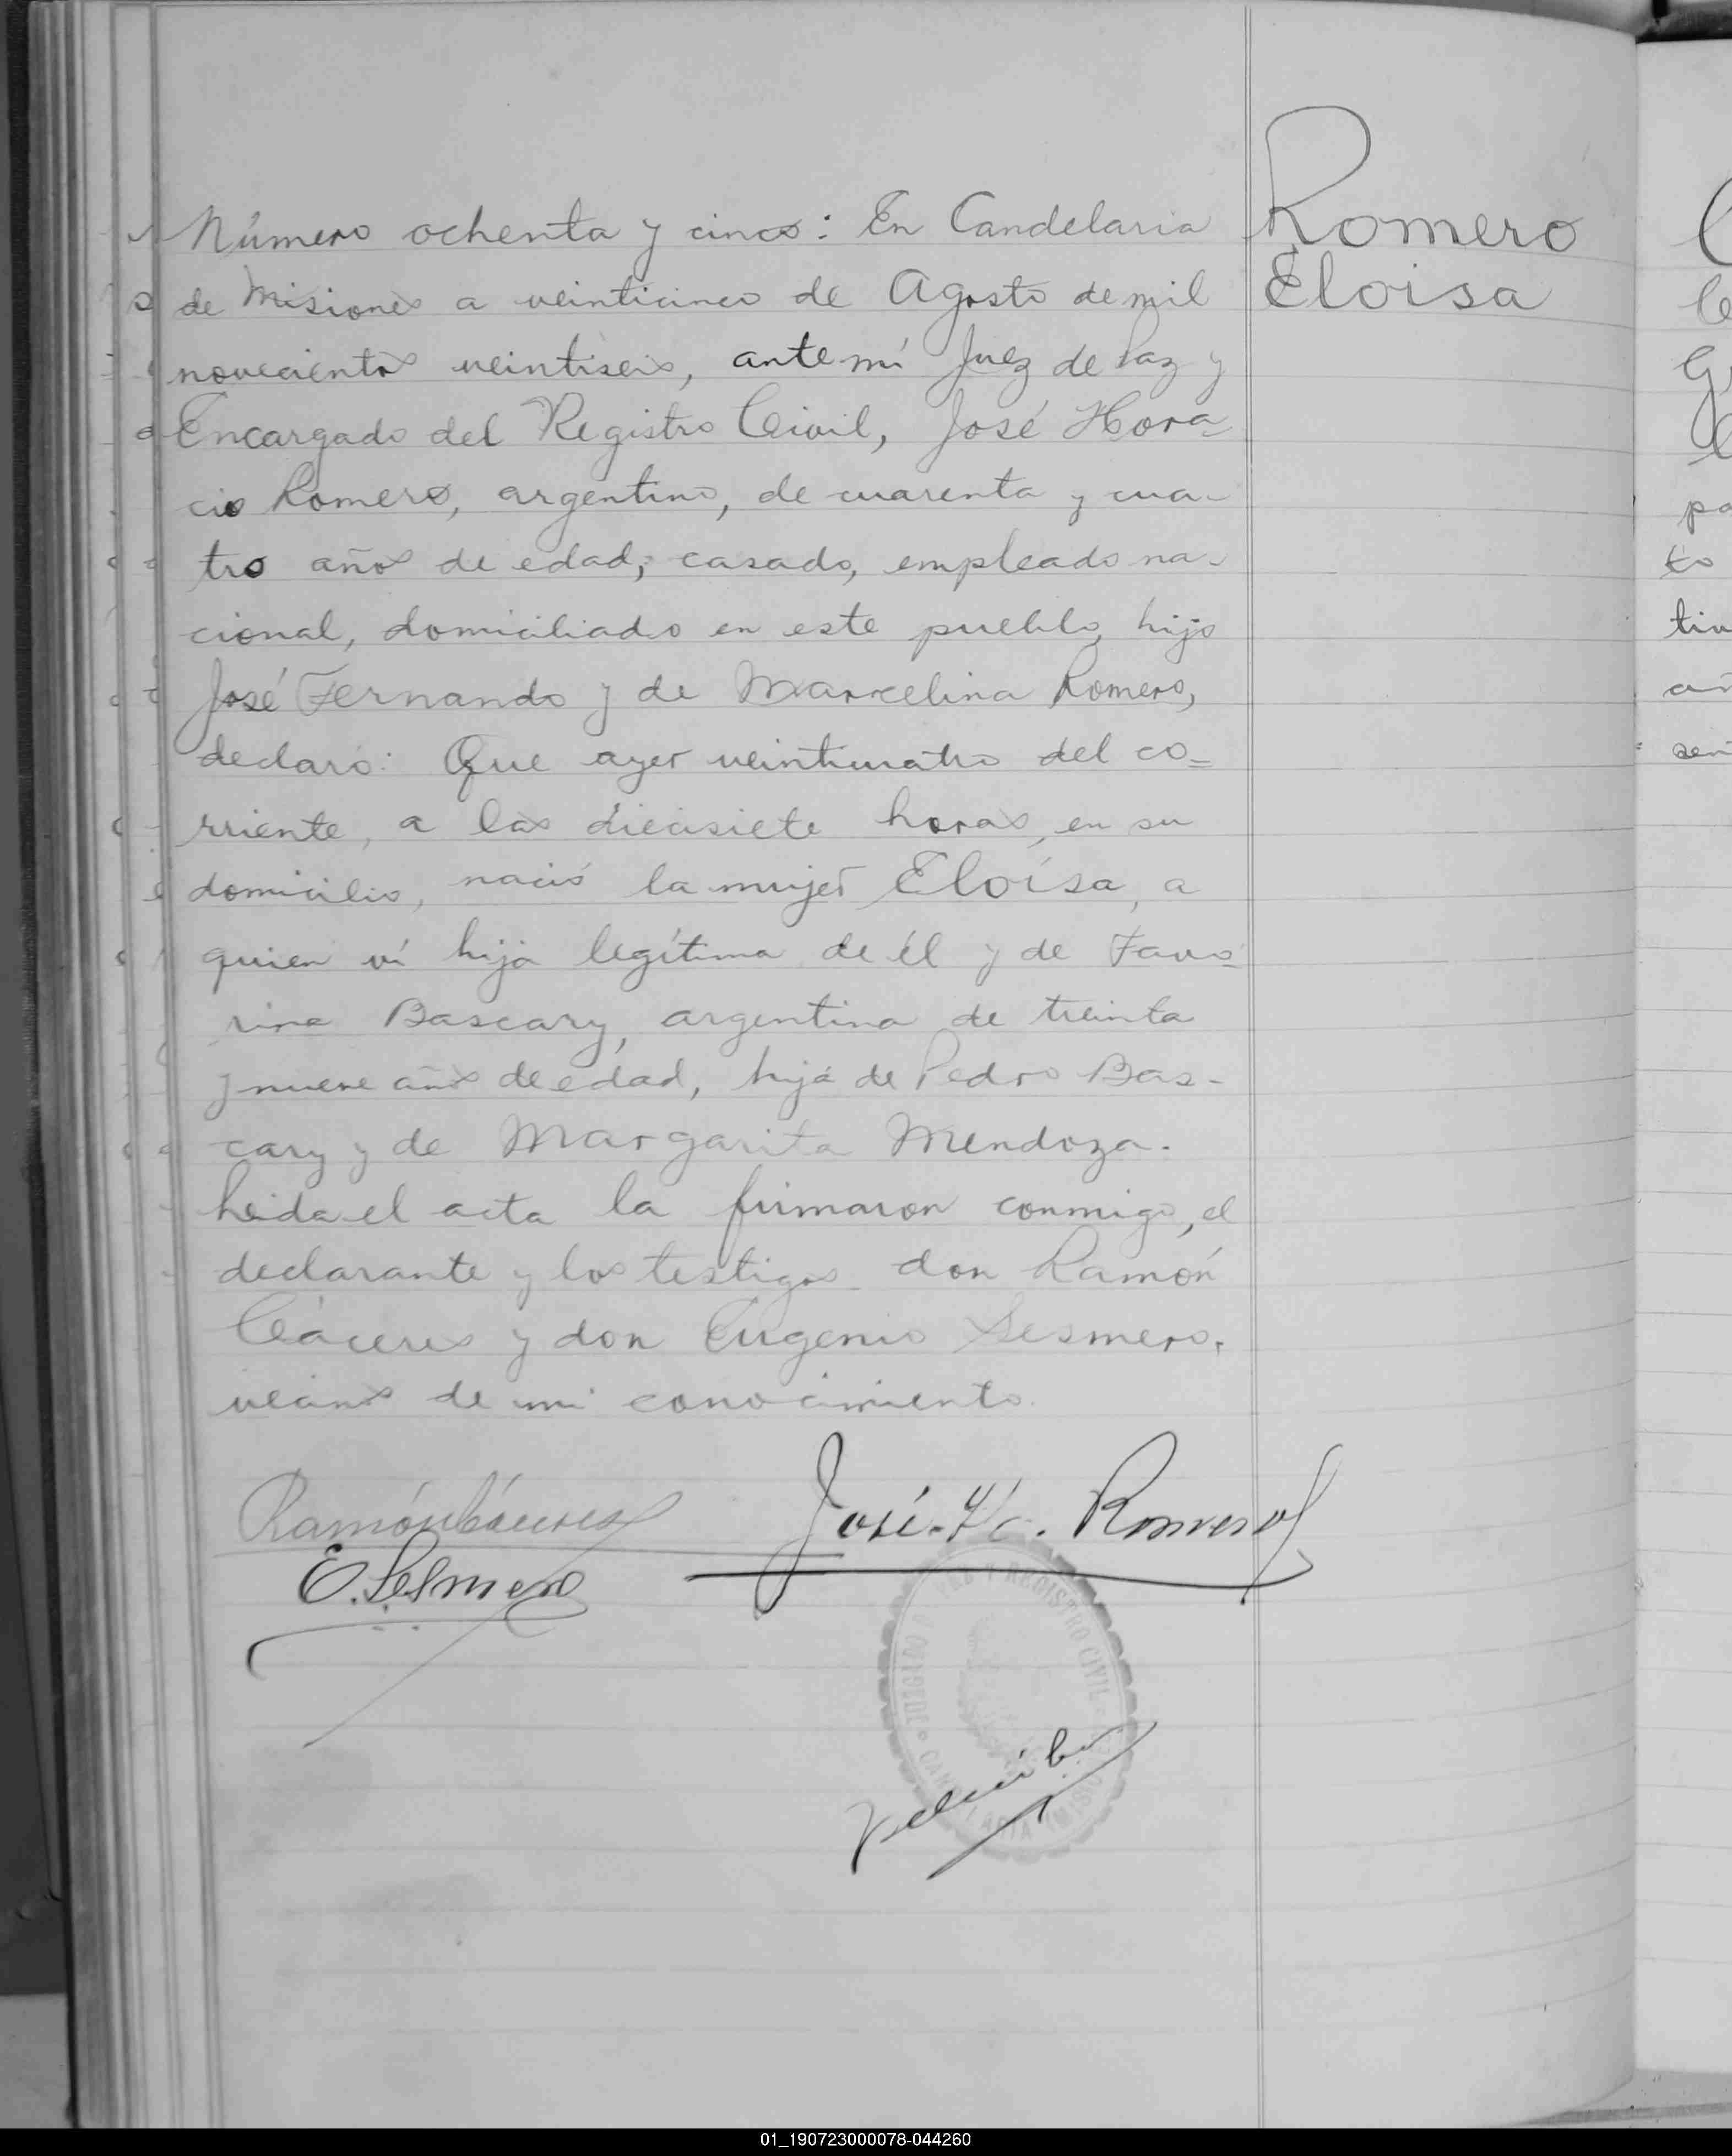 Romero
Eloisa
Número ochenta y cinco: En Candelaria
de Misiones a veinticinco de Agosto de mil
novecientos veintiseis, ante mí Juez de Paz y
Encargado del Registro Civil, José Hora-
cio Romero, argentino, de cuarenta y cua-
tro años de edad, casado, empleado na-
cional, domiciliado en este pueblo, hijo
José Fernando y de Marcelina Romero,
declaró: Que ayer veinticuatro del co=
rriente, a las diecisiete horas, en su
domicilio, nació la mujer Eloísa, a
quien ví hija legítima de él y de Favo=
rina Bascary, argentina de treinta
y nueve años de edad, hija de Pedro Bas-
cary y de Margarita Mendoza.
Leida el acta la firmaron conmigo, el
declarante y los testigos don Ramón
Cáceres y don Eugenio Sesmero.
vecinos de mi conocimiento.
Ramón Cáceres
José H. Romero
E. Sesmero
JUZGADO DE PAZ Y REGISTRO CIVIL
CANDELARIA (MISIONES)
01_190723000078-044260